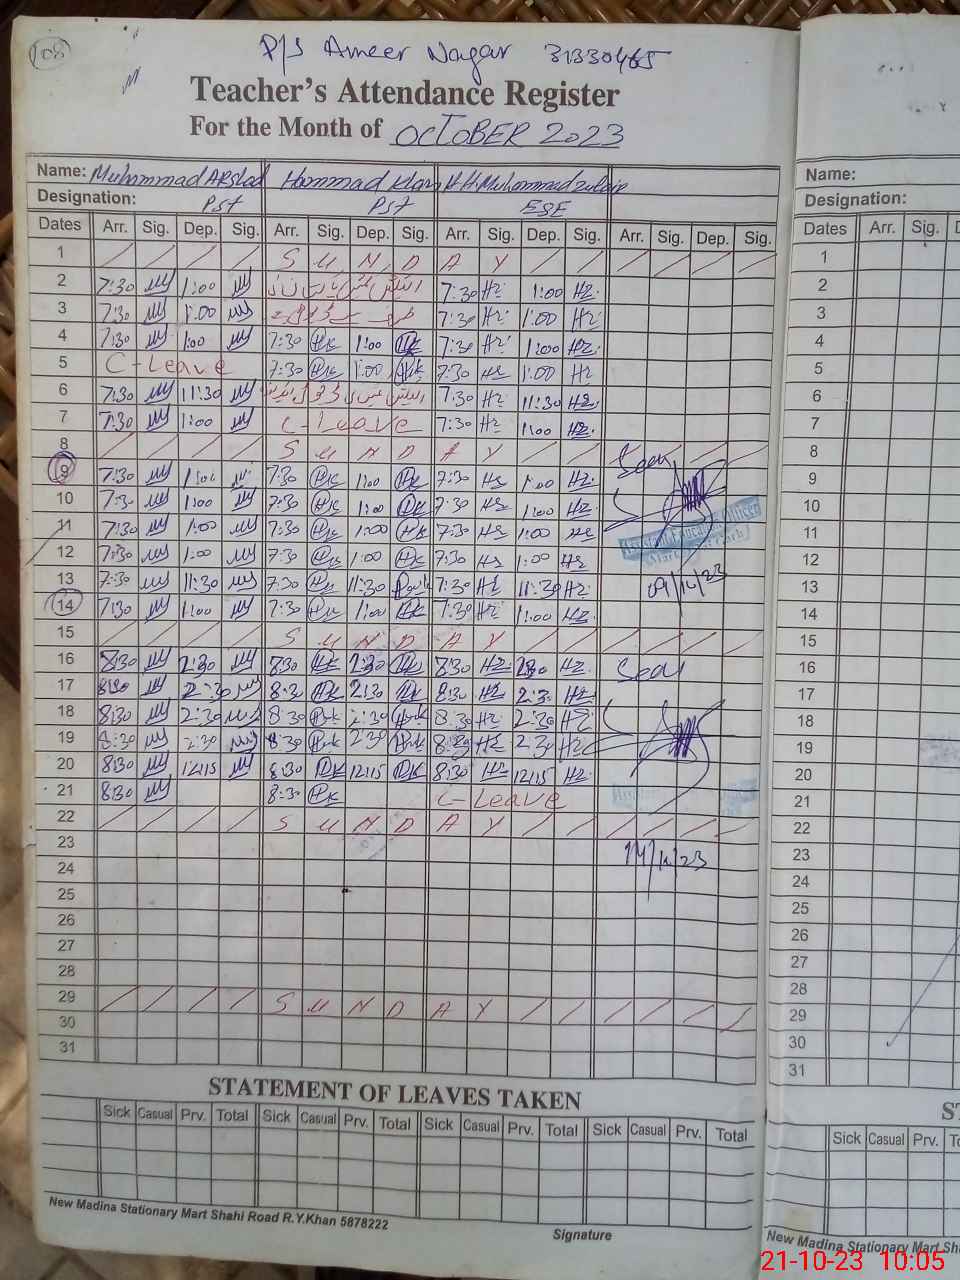 108
P/S Ameer Nagar 31330465
Teacher's Attendance Register
For the Month of OCTOBER 2023
Name: Muhammad ARshad Hammad Khan H.H.Muhammad Zubair
Designation: PST PST ESE
Dates Arr. Sig. Dep. Sig. Arr. Sig. Dep. Sig. Arr. Sig. Dep. Sig. Arr. Sig. Dep. Sig.
1 / / / / S U N D A Y / / / / / /
2 7:30 1:00 7:30 Hz 1:00 Hz
3 7:30 1:00 7:30 Hz 1:00 Hz
4 7:30 1:00 7:30 HK 1:00 HK 7:30 Hz 1:00 Hz
5 C-Leave 7:30 HK 1:00 HK 7:30 Hz 1:00 Hz
6 7:30 11:30 7:30 Hz 11:30 Hz
7 7:30 1:00 C-Leave 7:30 Hz 1:00 Hz
8 / / / / S U N D A Y / / / / / /
9 7:30 1:00 7:30 HK 1:00 HK 7:30 Hz 1:00 Hz Seen
10 7:30 1:00 7:30 HK 1:00 HK 7:30 Hz 1:00 Hz
11 7:30 1:00 7:30 HK 1:00 HK 7:30 Hz 1:00 Hz
Assistant Education Officer
12 7:30 1:00 7:30 HK 1:00 HK 7:30 Hz 1:00 Hz
13 7:30 11:30 7:30 HK 11:30 HK 7:30 Hz 11:30 Hz 09/10/23
14 7:30 1:00 7:30 HK 1:00 HK 7:30 Hz 1:00 Hz
15 / / / / S U N D A Y / / / / / /
16 8:30 2:30 8:30 HK 2:30 HK 8:30 Hz 2:30 Hz Seen
17 8:30 2:30 8:30 HK 2:30 HK 8:30 Hz 2:30 Hz
18 8:30 2:30 8:30 HK 2:30 HK 8:30 Hz 2:30 Hz
19 8:30 2:30 8:30 HK 2:30 HK 8:30 Hz 2:30 Hz
20 8:30 12:15 8:30 HK 12:15 HK 8:30 Hz 12:15 Hz
21 8:30 8:30 HK C-Leave
22 / / / / S U N D A Y / / / / / /
23 14/10/23
24
25
26
27
28
29 / / / / S U N D A Y / / / / / /
30
31
STATEMENT OF LEAVES TAKEN
Sick Casual Prv. Total Sick Casual Prv. Total Sick Casual Prv. Total Sick Casual Prv. Total
New Madina Stationary Mart Shahi Road R.Y.Khan 5878222
Signature
Name:
Designation:
Dates Arr. Sig.
1
2
3
4
5
6
7
8
9
10
11
12
13
14
15
16
17
18
19
20
21
22
23
24
25
26
27
28
29
30
31
Sick Casual Prv.
New Madina Stationary Mart
21-10-23 10:05